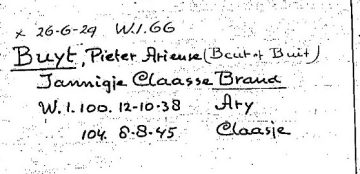 x 26-6-29 W.I.66
Buyt, Pieter Arieuse (Beut of Buit)
Jannigje Claasse Brand
W.I.100. 12-10-38 Ary
104. 8-8-45 Claasje